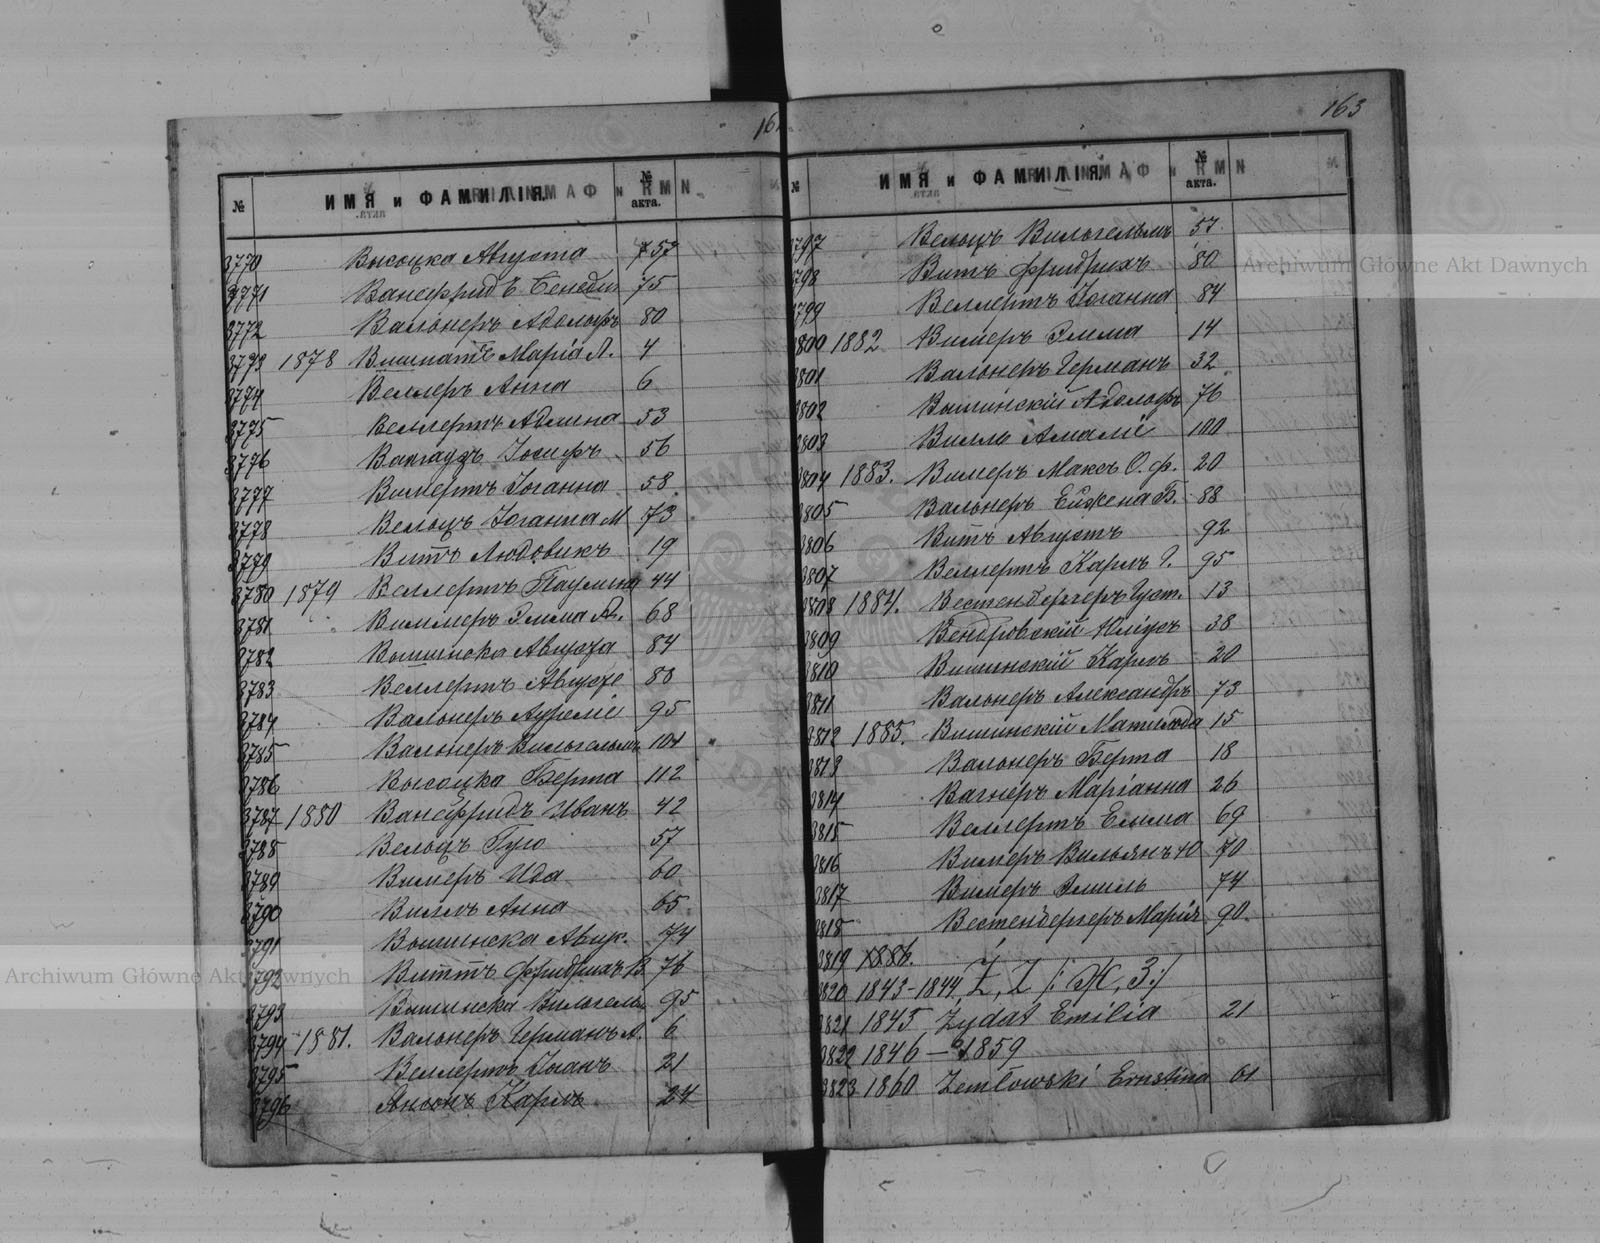 № ИМЯ и ФАМИЛІЯ. № акта.
3770 Высоцка Августа 57
3771 Ванефридъ Бенеди 75
3772 Вальнеръ Адольфъ 80
3773 1878 Марія Л. 4
3774 Веллеръ Анна 6
3775 Веллертъ Адлина 53
3776 Іосифъ 56
3777 Виллертъ Іоганна 58
3778 Вельцъ Іоганна М 73
3779 Виттъ Людовикъ 19
3780 1879 Веллертъ Паулина 44
3781 Виллеръ Эмма 68
3782 Вышинска Августа 84
3783 Веллертъ Августъ 88
3784 Вальнеръ Аурелія 95
3785 Вальнеръ Вильгельмъ 104
3786 Высоцка Берта 112
3787 1880 Ванефридъ Иванъ 42
3788 Вельцъ Гуго 57
3789 Вимеръ Ида 60
3790 Вилль Анна 65
3791 Вышинска 74
3792 Виттъ Фридрихъ В 76
3793 Вышинска Вильгель 95
3794 1881. Вальнеръ Германъ А. 6
3795 Веллертъ Іоганъ 21
3796 Карлъ 24
163
№ ИМЯ и ФАМИЛІЯ № акта.
3797 Вельцъ Вильгельмъ 57
3798 Витъ Фридрихъ 80
3799 Веллертъ Іоганна 84
3800 1882 Вимеръ Эмма 14
3801 Вальнеръ Германъ 32
3802 Вышинскій Адольфъ 76
3803 Вилль Амалія 100
3804 1883. Вимеръ Максъ О. Ф. 20
3805 Вальнеръ Евжена Б. 88
3806 Витъ Августъ 92
3807 Веллертъ Карлъ Г. 95
3808 1884. Вестенбергеръ Густ. 13
3809 Юліусъ 38
3810 Вишинскій Карлъ 20
3811 Вальнеръ Александръ 73
3812 1885. Вишинскій Матильда 15
3813 Вальнеръ Берта 18
3814 Вагнеръ Маріанна 26
3815 Веллертъ Емма 69
3816 Вимеръ 70
3817 Вимеръ Эмиль 74
3818 Вестенбергеръ Марія 90.
3819 1886.
3820 1843-1844 Ż, Z /: Ж, З :/
3821 1845 Żydat Emilia 21
3822 1846 – 1859
3823 1860 Zemłowski Ernstina 61
Archiwum Główne Akt Dawnych
Archiwum Główne Akt Dawnych